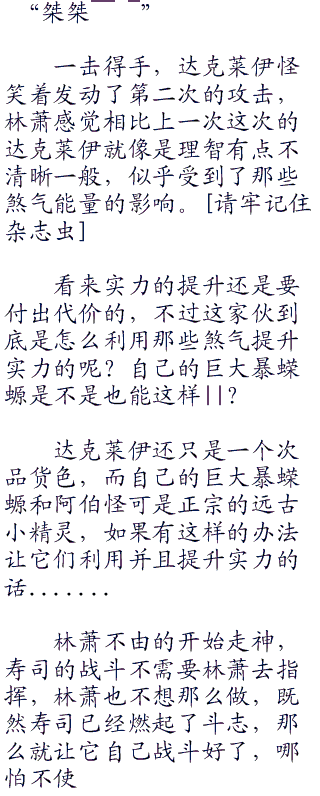 “桀桀”
一击得手，达克莱伊怪
笑着发动了第二次的攻击，
林萧感觉相比上一次这次的
达克莱伊就像是理智有点不
清晰一般，似乎受到了那些
煞气能量的影响。[请牢记住
杂志虫]
看来实力的提升还是要
付出代价的，不过这家伙到
底是怎么利用那些煞气提升
实力的呢？自己的巨大暴蝾
螈是不是也能这样||？
达克莱伊还只是一个次
品货色，而自己的巨大暴蝾
螈和阿伯怪可是正宗的远古
小精灵，如果有这样的办法
让它们利用并且提升实力的
话.......
林萧不由的开始走神，
寿司的战斗不需要林萧去指
挥，林萧也不想那么做，既
然寿司已经燃起了斗志，那
么就让它自己战斗好了，哪
怕不使